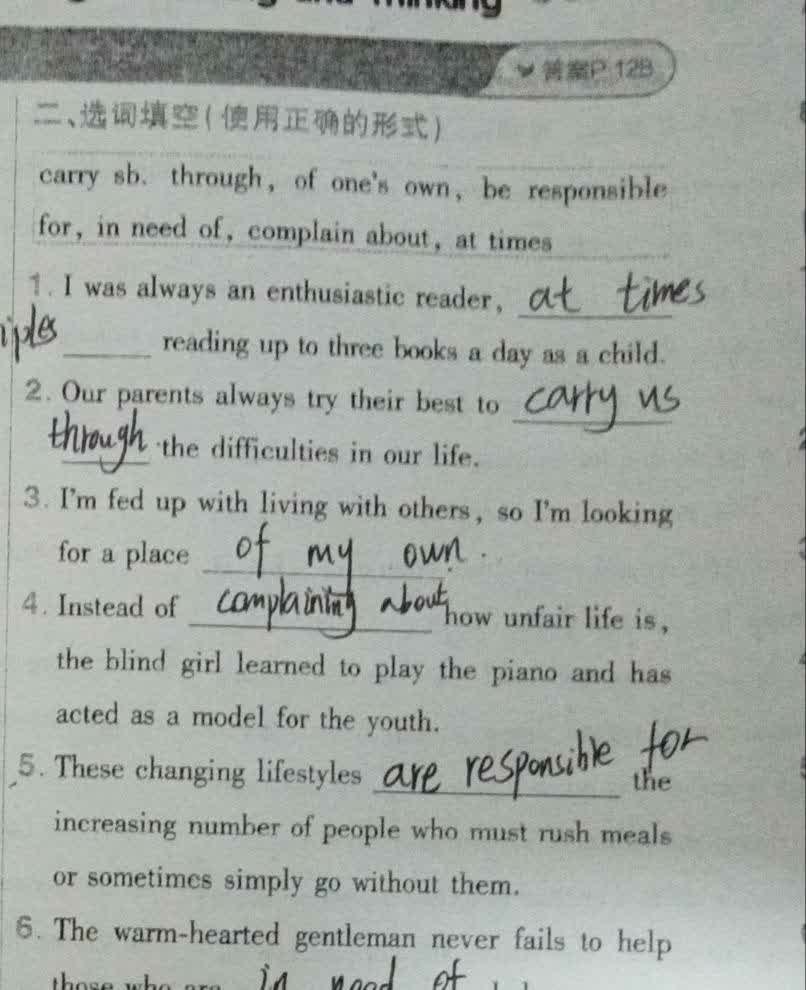 and Thinking
答案P.128
二、选词填空(使用正确的形式)
carry sb. through, of one's own, be responsible
for, in need of, complain about, at times
1. I was always an enthusiastic reader, at times
reading up to three books a day as a child.
2. Our parents always try their best to carry us
through the difficulties in our life.
3. I'm fed up with living with others, so I'm looking
for a place of my own.
4. Instead of complaining about how unfair life is,
the blind girl learned to play the piano and has
acted as a model for the youth.
5. These changing lifestyles are responsible for the
increasing number of people who must rush meals
or sometimes simply go without them.
6. The warm-hearted gentleman never fails to help
those who are in need of